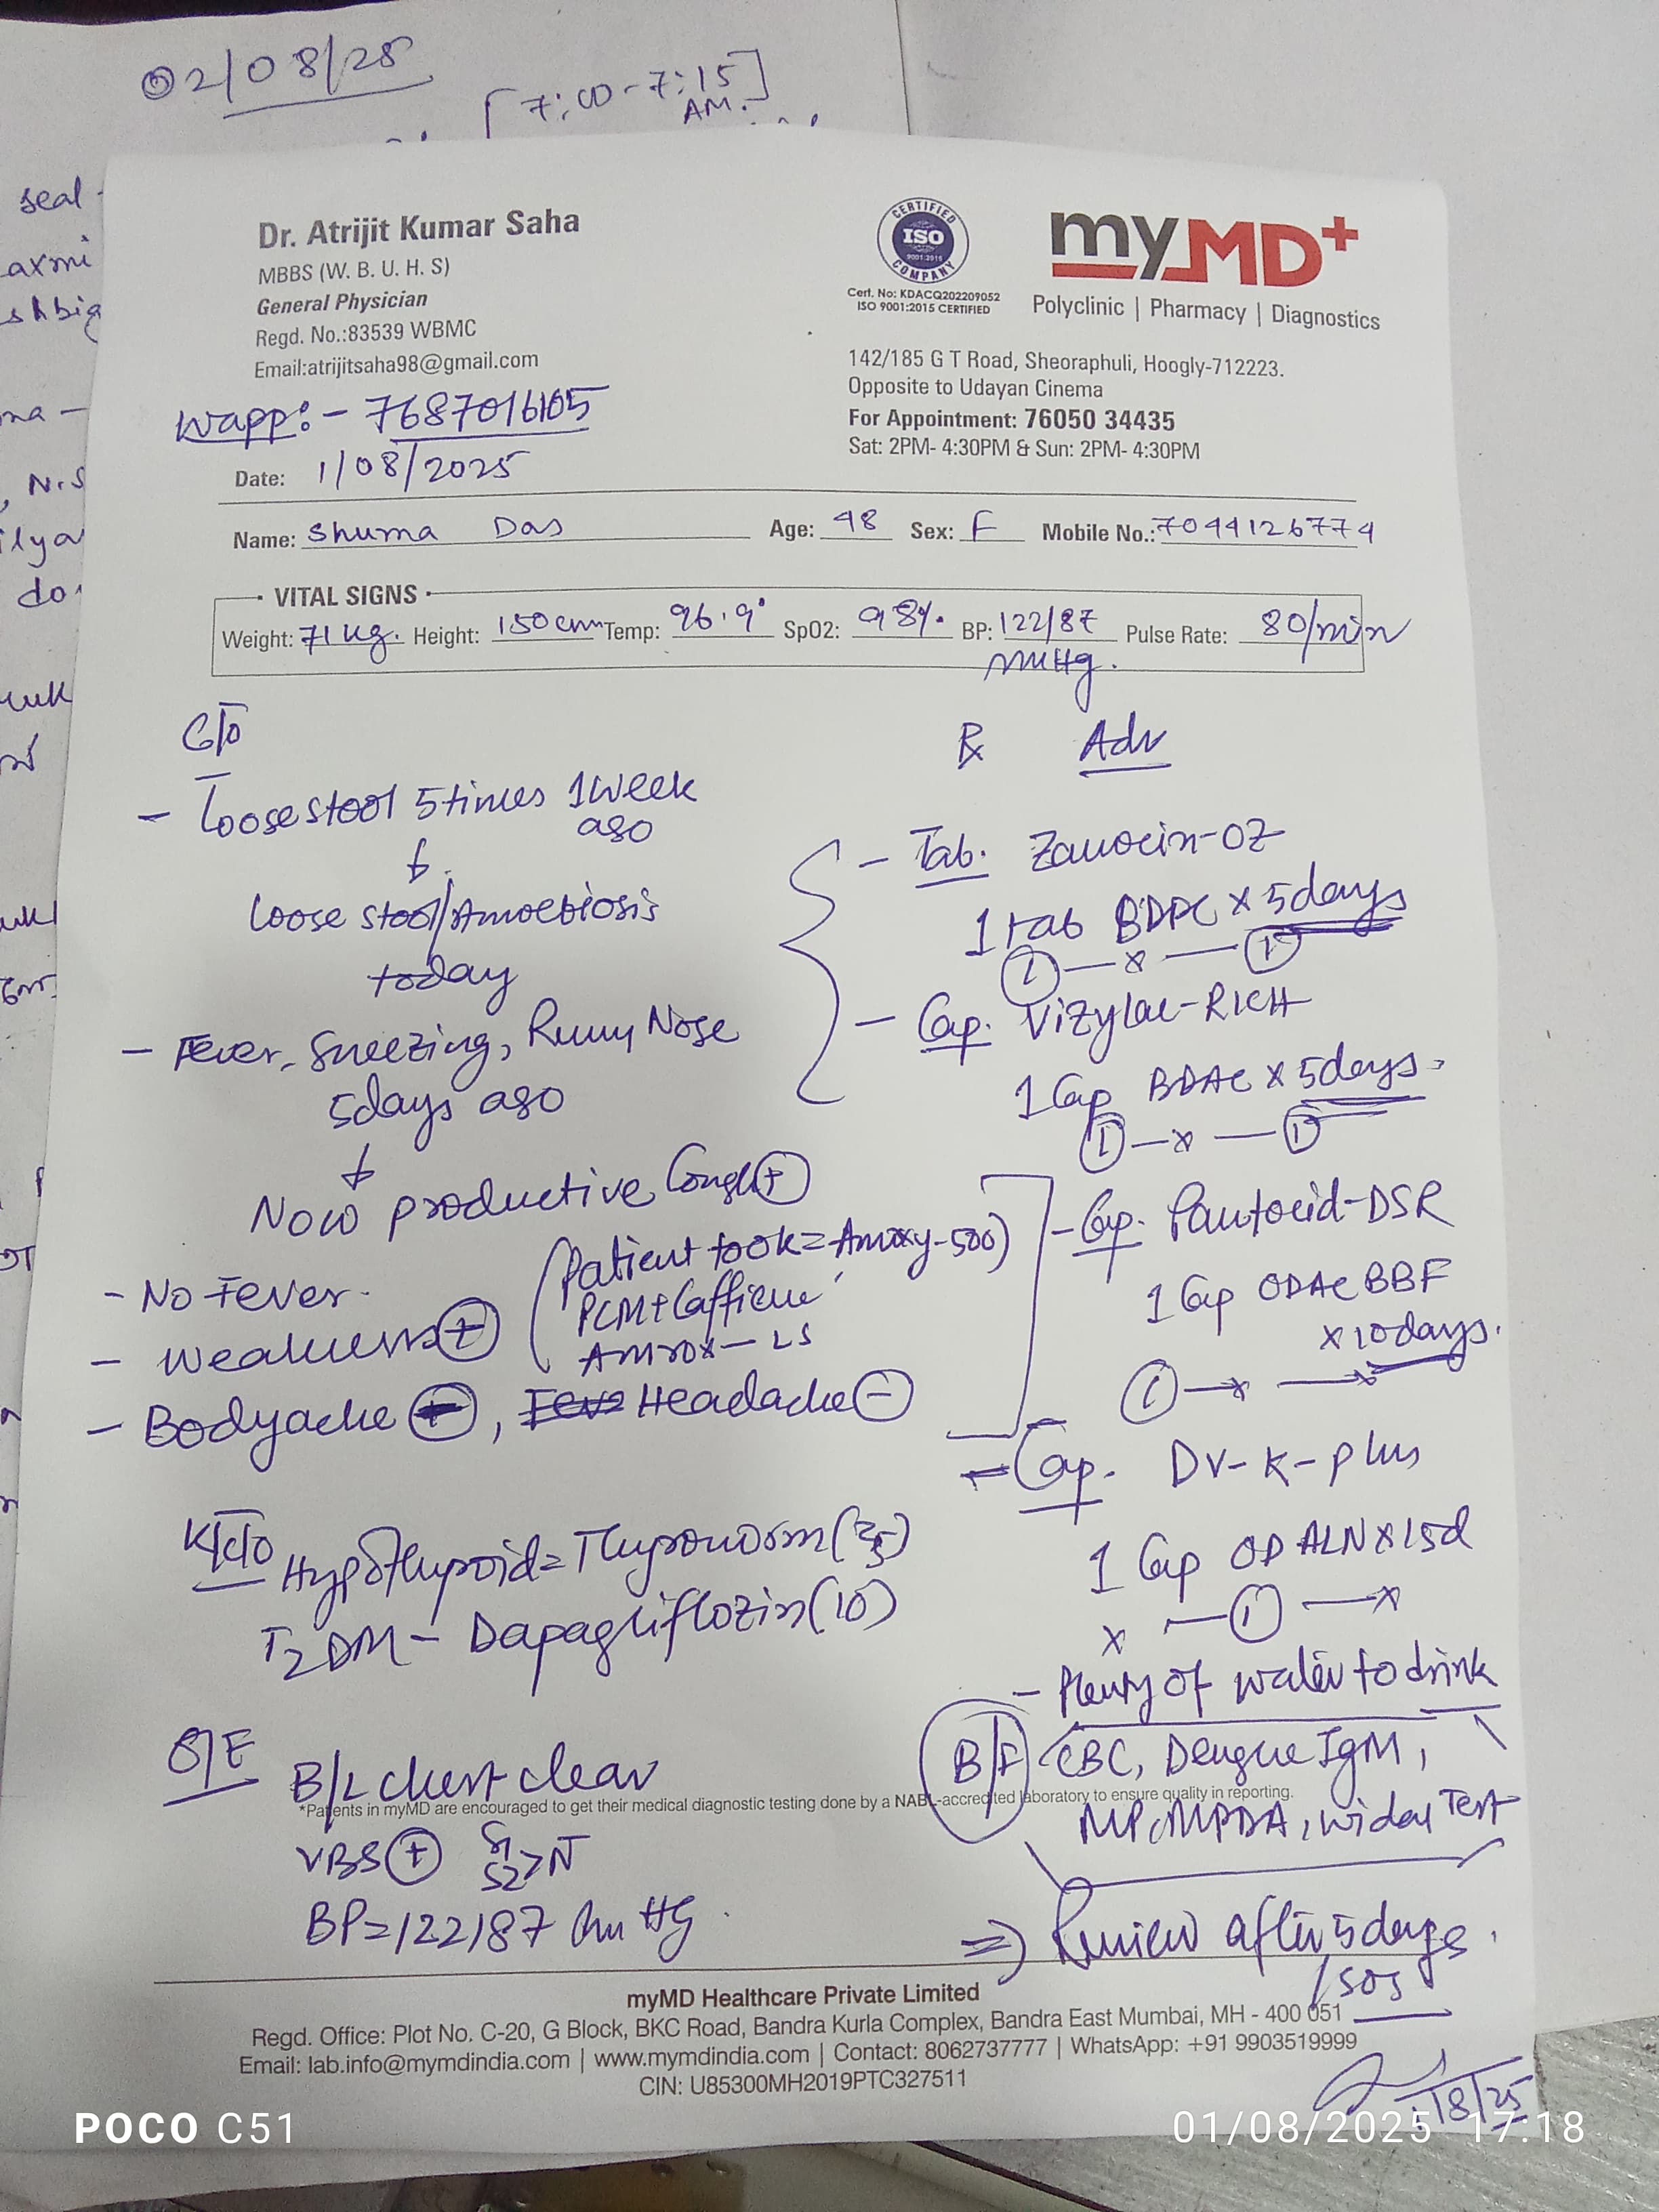 02/08/25
[7:00-7:15]
AM.
seal -
axmi
shbig
na -
, N.S
ilya
do.
Dr. Atrijit Kumar Saha
MBBS (W. B. U. H. S)
General Physician
Regd. No.:83539 WBMC
Email:atrijitsaha98@gmail.com
Wapp:- 7687016105
Date: 1/08/2025
CERTIFIED
ISO
9001:2015
COMPANY
Cert. No: KDACQ202209052
ISO 9001:2015 CERTIFIED
myMD+
Polyclinic | Pharmacy | Diagnostics
142/185 G T Road, Sheoraphuli, Hoogly-712223.
Opposite to Udayan Cinema
For Appointment: 76050 34435
Sat: 2PM- 4:30PM & Sun: 2PM- 4:30PM
Name: Shuma Das Age: 48 Sex: F Mobile No.: 7044126774
VITAL SIGNS
Weight: 71 kg. Height: 150 cm Temp: 96.9° SpO2: 98% BP: 122/87 Pulse Rate: 80/min
mmHg.
C/O
- Loose stool 5 times 1 week
ago
Loose stool/Amoebiosis
today
- Fever, Sneezing, Runny Nose
5days ago
Now productive Cough +
(Patient took = Amoxy-500)
- No Fever.
PCM+Caffiene
- Weakness +
Amrox-LS
- Bodyache +, Headache -
K/C/O Hypothyroid = Thyronorm (25)
T2DM - Dapagliflozin (10)
O/E B/L chest clear
VBS + S1 S2 > N
BP = 122/87 mm Hg.
Rx Adv
- Tab. Zanocin-OZ
1 tab BDPC x 5days
1 - x - 1
- Cap. Vizylac-RICH
1 Cap BDAC x 5days.
1 - x - 1
- Cap. Pantocid-DSR
1 Cap ODAC BBF
x 10days.
1 - x - x
- Cap. DV-K-Plus
1 Cap OD ALN x 15d
x - 1 - x
- Plenty of water to drink
B/I CBC, Dengue IgM,
MP, MPDA, Widal Test
*Patients in myMD are encouraged to get their medical diagnostic testing done by a NABL-accredited laboratory to ensure quality in reporting.
=> Review after 5 days.
/SOS
myMD Healthcare Private Limited
Regd. Office: Plot No. C-20, G Block, BKC Road, Bandra Kurla Complex, Bandra East Mumbai, MH - 400 051
Email: lab.info@mymdindia.com | www.mymdindia.com | Contact: 8062737777 | WhatsApp: +91 9903519999
CIN: U85300MH2019PTC327511
1/8/25
POCO C51
01/08/2025 17:18